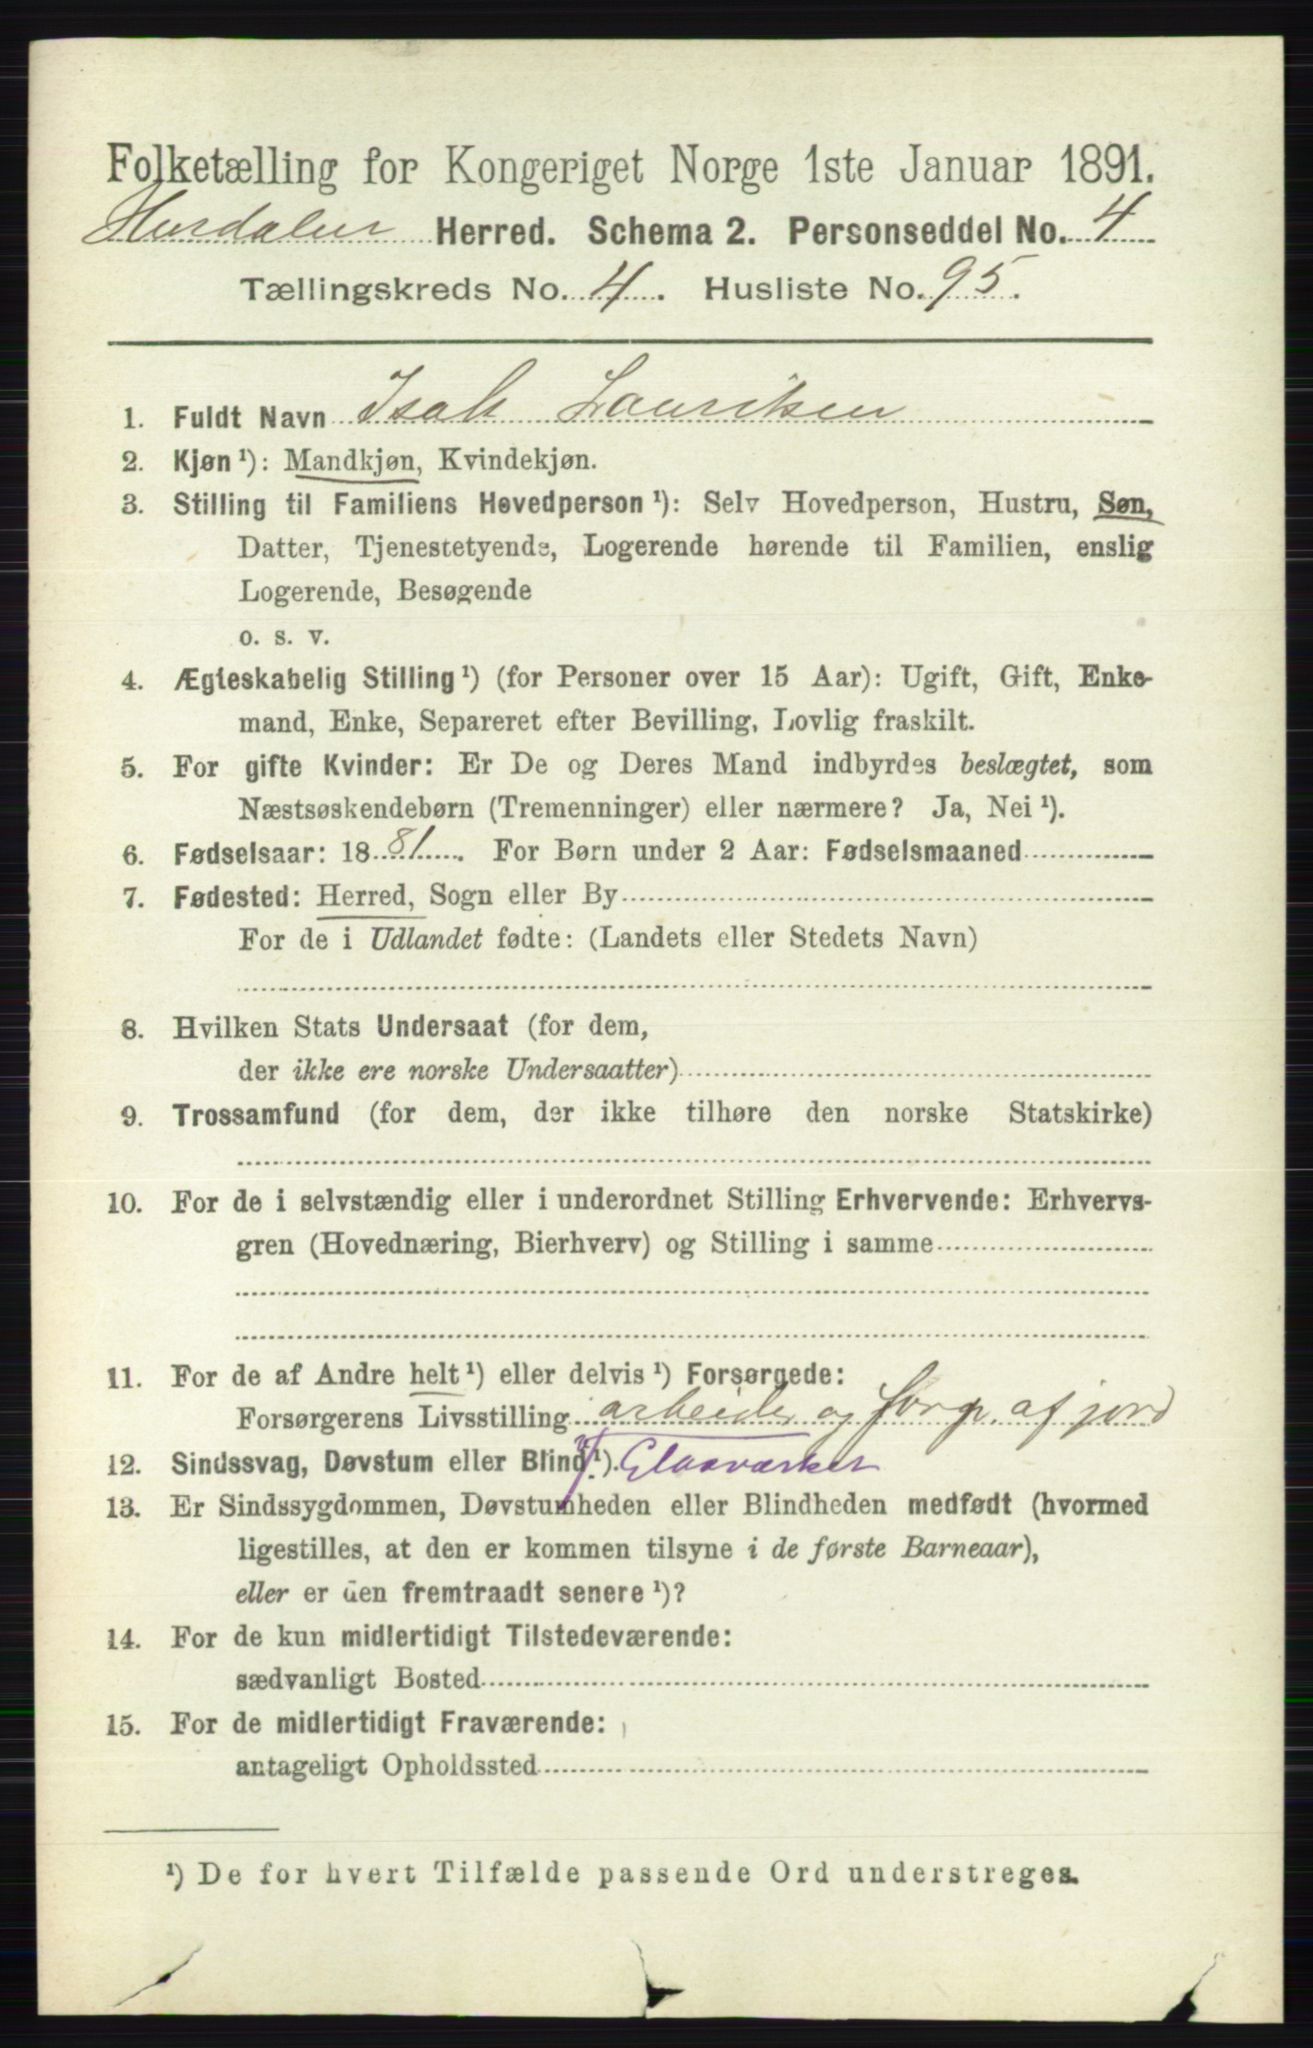 Folketælling for Kongeriget Norge 1ste Januar 1891.
Hurdalen Herred. Schema 2. Personseddel No. 4
Tællingskreds No. 4. Husliste No. 95.
1. Fuldt Navn Isak Lauritsen
2. Kjøn ¹): Mandkjøn, Kvindekjøn.
3. Stilling til Familiens Hovedperson ¹): Selv Hovedperson, Hustru, Søn,
Datter, Tjenestetyende, Logerende hørende til Familien, enslig
Logerende, Besøgende
o. s. v.
4. Ægteskabelig Stilling ¹) (for Personer over 15 Aar): Ugift, Gift, Enke-
mand, Enke, Separeret efter Bevilling, Lovlig fraskilt.
5. For gifte Kvinder: Er De og Deres Mand indbyrdes beslægtet, som
Næstsøskendebørn (Tremenninger) eller nærmere? Ja, Nei ¹).
6. Fødselsaar: 1881. For Børn under 2 Aar: Fødselsmaaned
7. Fødested: Herred, Sogn eller By
For de i Udlandet fødte: (Landets eller Stedets Navn)
8. Hvilken Stats Undersaat (for dem,
der ikke ere norske Undersaatter)
9. Trossamfund (for dem, der ikke tilhøre den norske Statskirke)
10. For de i selvstændig eller i underordnet Stilling Erhvervende: Erhvervs-
gren (Hovednæring, Bierhverv) og Stilling i samme
11. For de af Andre helt ¹) eller delvis ¹) Forsørgede:
Forsørgerens Livsstilling arbeider og forp. af jord
12. Sindssvag, Døvstum eller Blind ¹). Glasværket
13. Er Sindssygdommen, Døvstumheden eller Blindheden medfødt (hvormed
ligestilles, at den er kommen tilsyne i de første Barneaar),
eller er den fremtraadt senere ¹)?
14. For de kun midlertidigt Tilstedeværende:
sædvanligt Bosted
15. For de midlertidigt Fraværende:
antageligt Opholdssted
¹) De for hvert Tilfælde passende Ord understreges.